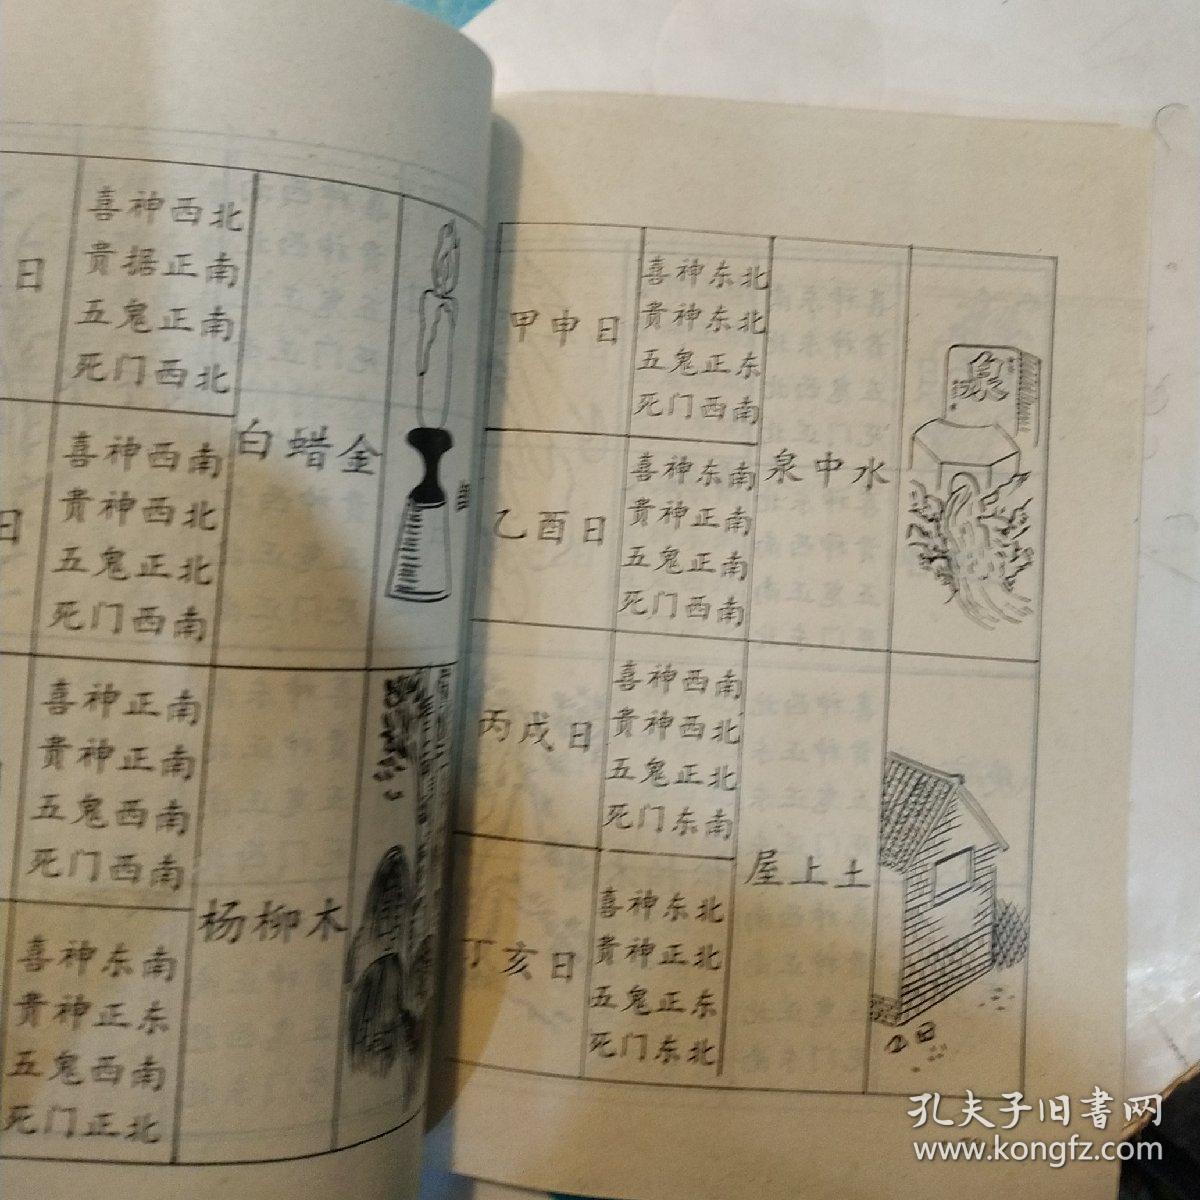 日
喜神西北
贵据正南
五鬼正南
死门西北
日
喜神西南
贵神西北
五鬼正北
死门西南
白蜡金
喜神正南
贵神正南
五鬼西南
死门西南
喜神东南
贵神正东
五鬼西南
死门正北
杨柳木
甲申日
喜神东北
贵神东北
五鬼正东
死门西南
乙酉日
喜神东南
贵神正南
五鬼正南
死门西南
泉中水
泉
丙戌日
喜神西南
贵神西北
五鬼正北
死门东南
丁亥日
喜神东北
贵神正北
五鬼正东
死门东北
屋上土
孔夫子旧书网
www.kongfz.com